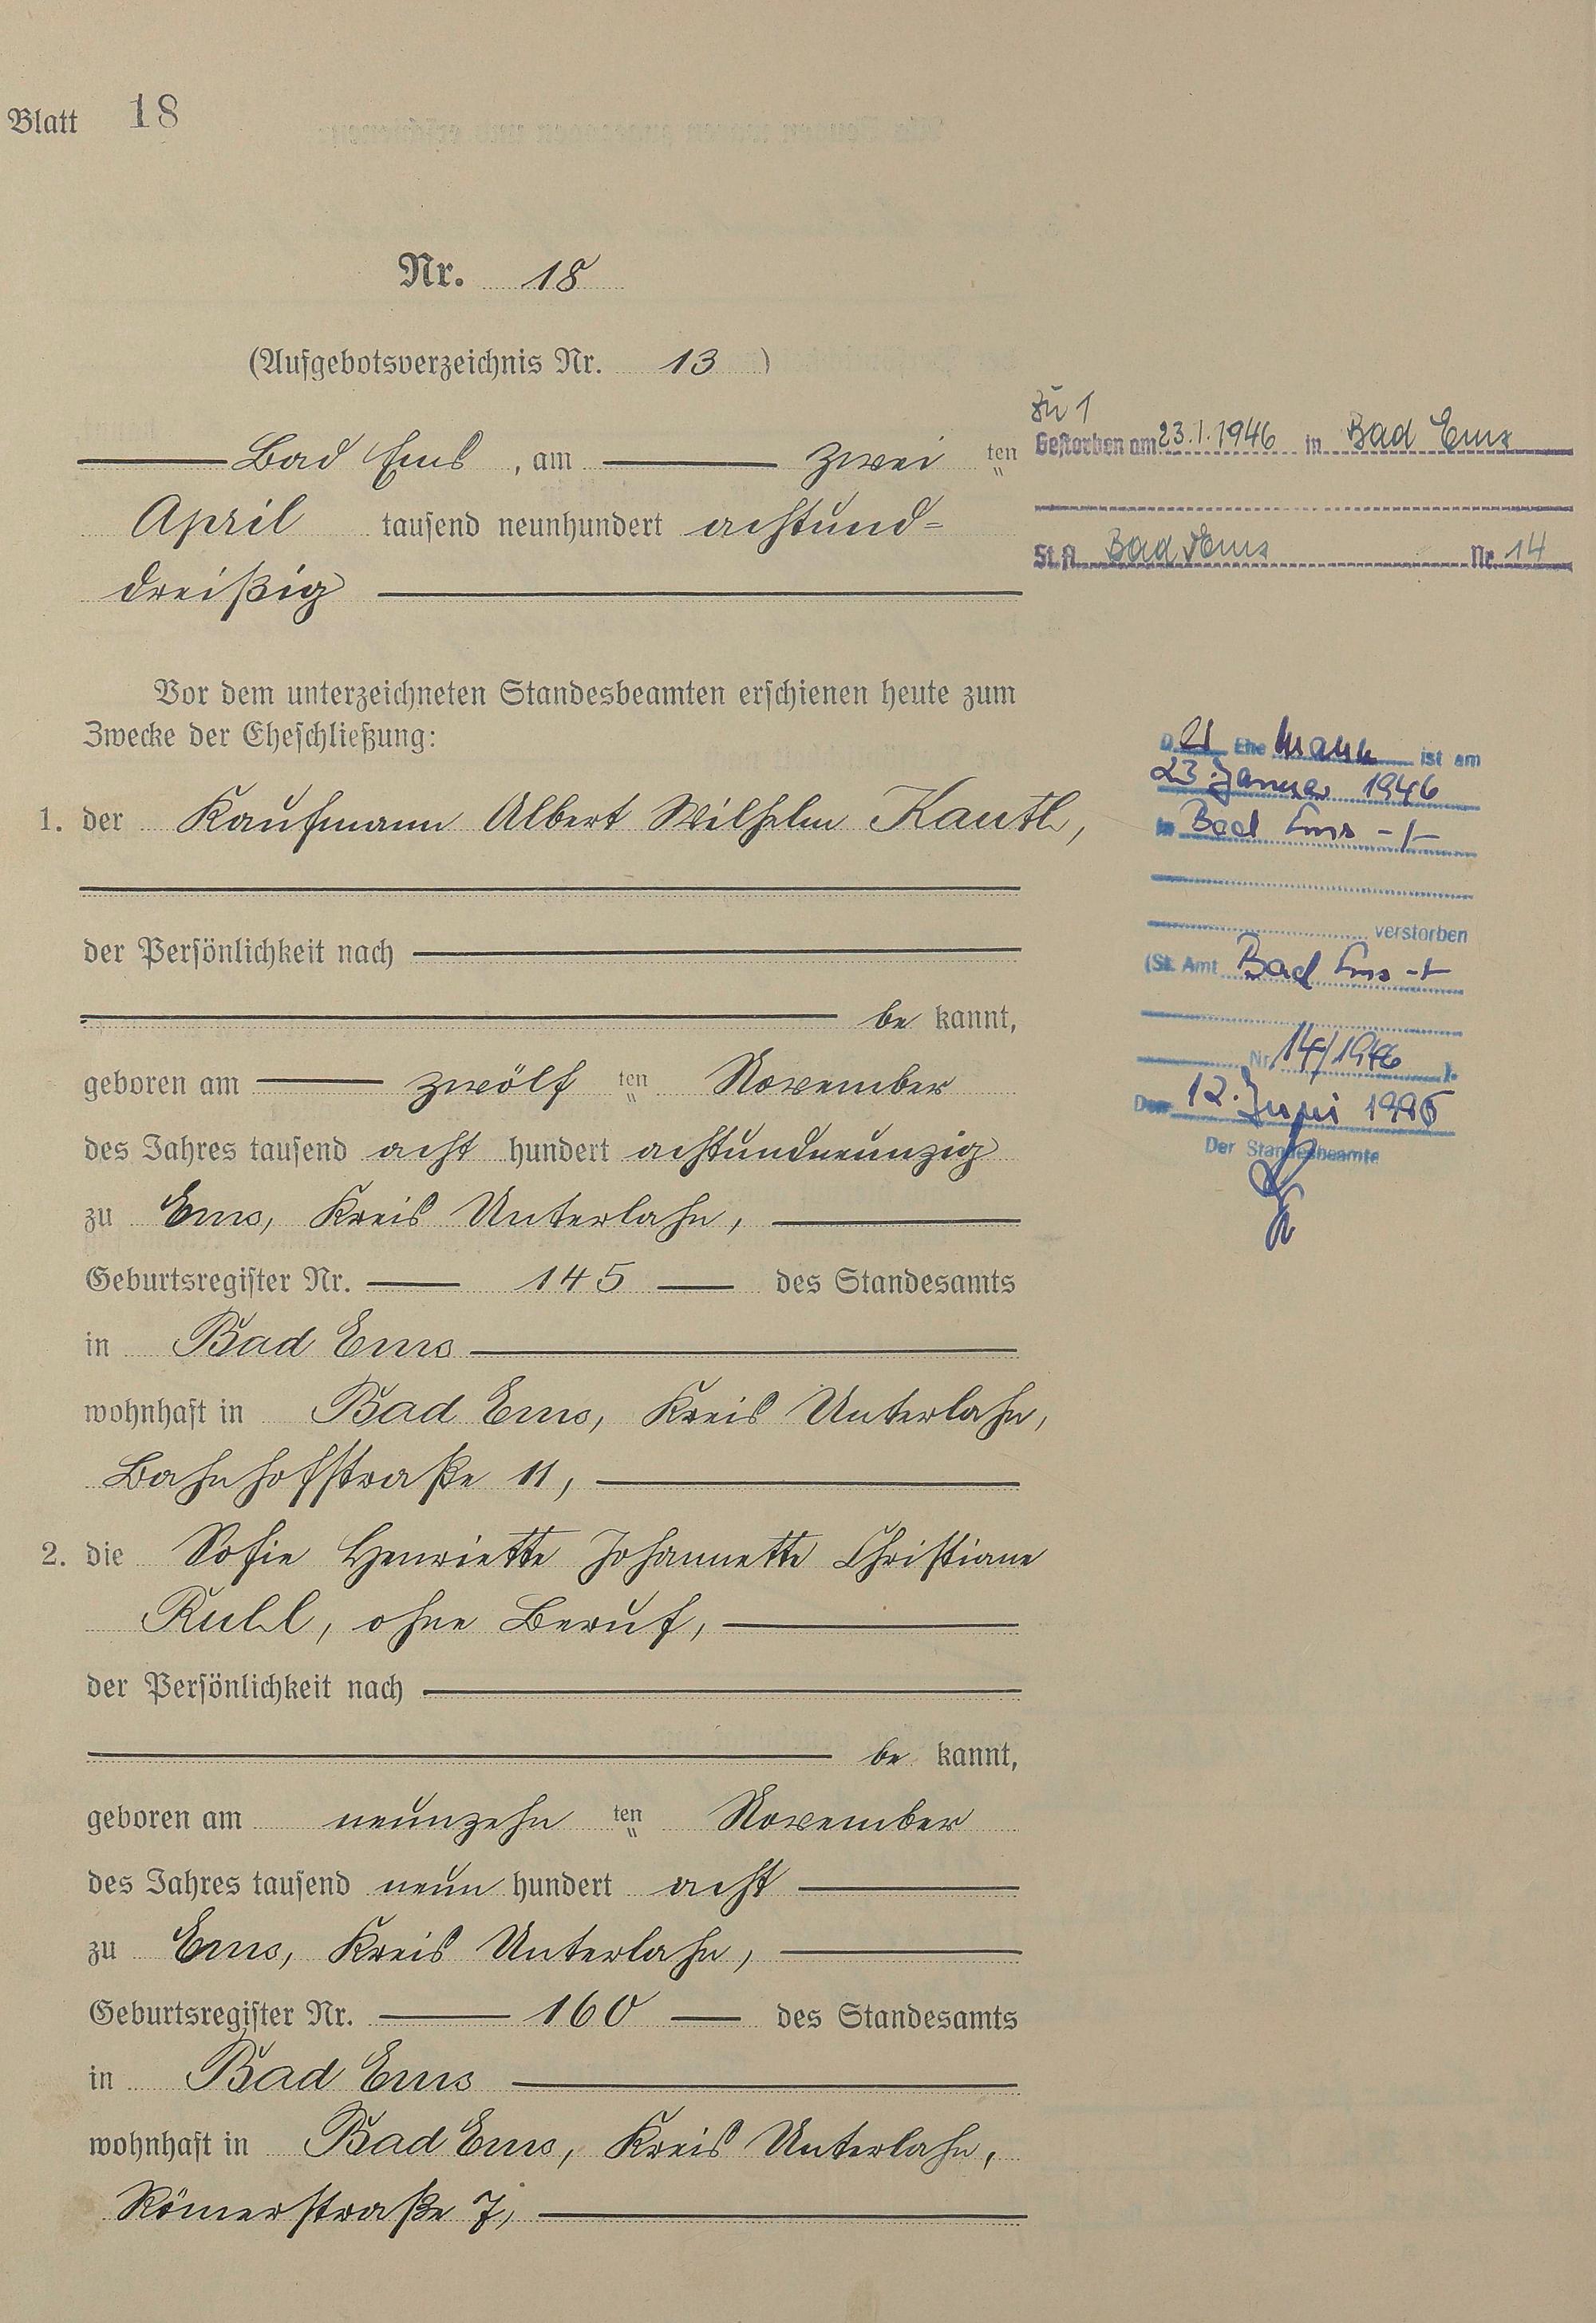 Blatt 18
Nr. 18
(Aufgebotsverzeichnis Nr. 13 )
Bad Ems, am zwei ten
April tausend neunhundert achtund=
dreißig
Vor dem unterzeichneten Standesbeamten erschienen heute zum
Zwecke der Eheschließung:
1. der Kaufmann Albert Wilhelm Kauth,
der Persönlichkeit nach
be kannt,
geboren am zwölf ten November
des Jahres tausend acht hundert achtundneunzig
zu Ems, Kreis Unterlahn,
Geburtsregister Nr. 145 des Standesamts
in Bad Ems
wohnhaft in Bad Ems, Kreis Unterlahn,
Bahnhofstraße 11,
2. die Sofie Henriette Johannette Christiane
Ruhl, ohne Beruf,
der Persönlichkeit nach
be kannt,
geboren am neunzehn ten November
des Jahres tausend neun hundert acht
zu Ems, Kreis Unterlahn,
Geburtsregister Nr. 160 des Standesamts
in Bad Ems
wohnhaft in Bad Ems, Kreis Unterlahn,
Römerstraße 7,
zu 1
Gestorben am 23.1.1946 in Bad Ems
St.A. Bad Ems Nr. 14
Der Ehe mann ist am
23. Januar 1946
in Bad Ems -/-
verstorben
(St. Amt Bad Ems -/-
Nr. 14/1946 ).
Den 12. Juni
Der Standesbeamte